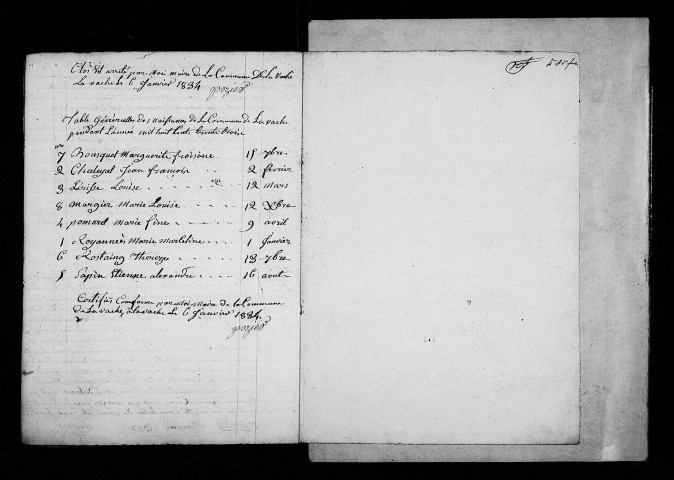 Clos et arrêté par moi maire de la Commune De la Vache
La vache le 6 Janvier 1834
Table Généralle des Naissances de la Commune de La vache
pendant L'année mil huit Cents trente trois
7 Bousquet Marguerite 15 7bre
2 Chaleyat Jean françois 2 février
3 Louise 12 mars
8 Margier Marie Louise 12 Xbre
4 pomard marie fine 9 avril
1 Royannés Marie Marceline 1 Janvier
6 Rostaing 13 7bre
5 Sapin Etienne alexandre 16 aout
Certifiés Conforme par moi Maire de la Commune
de La vache, a la vache le 6 Janvier 1834.